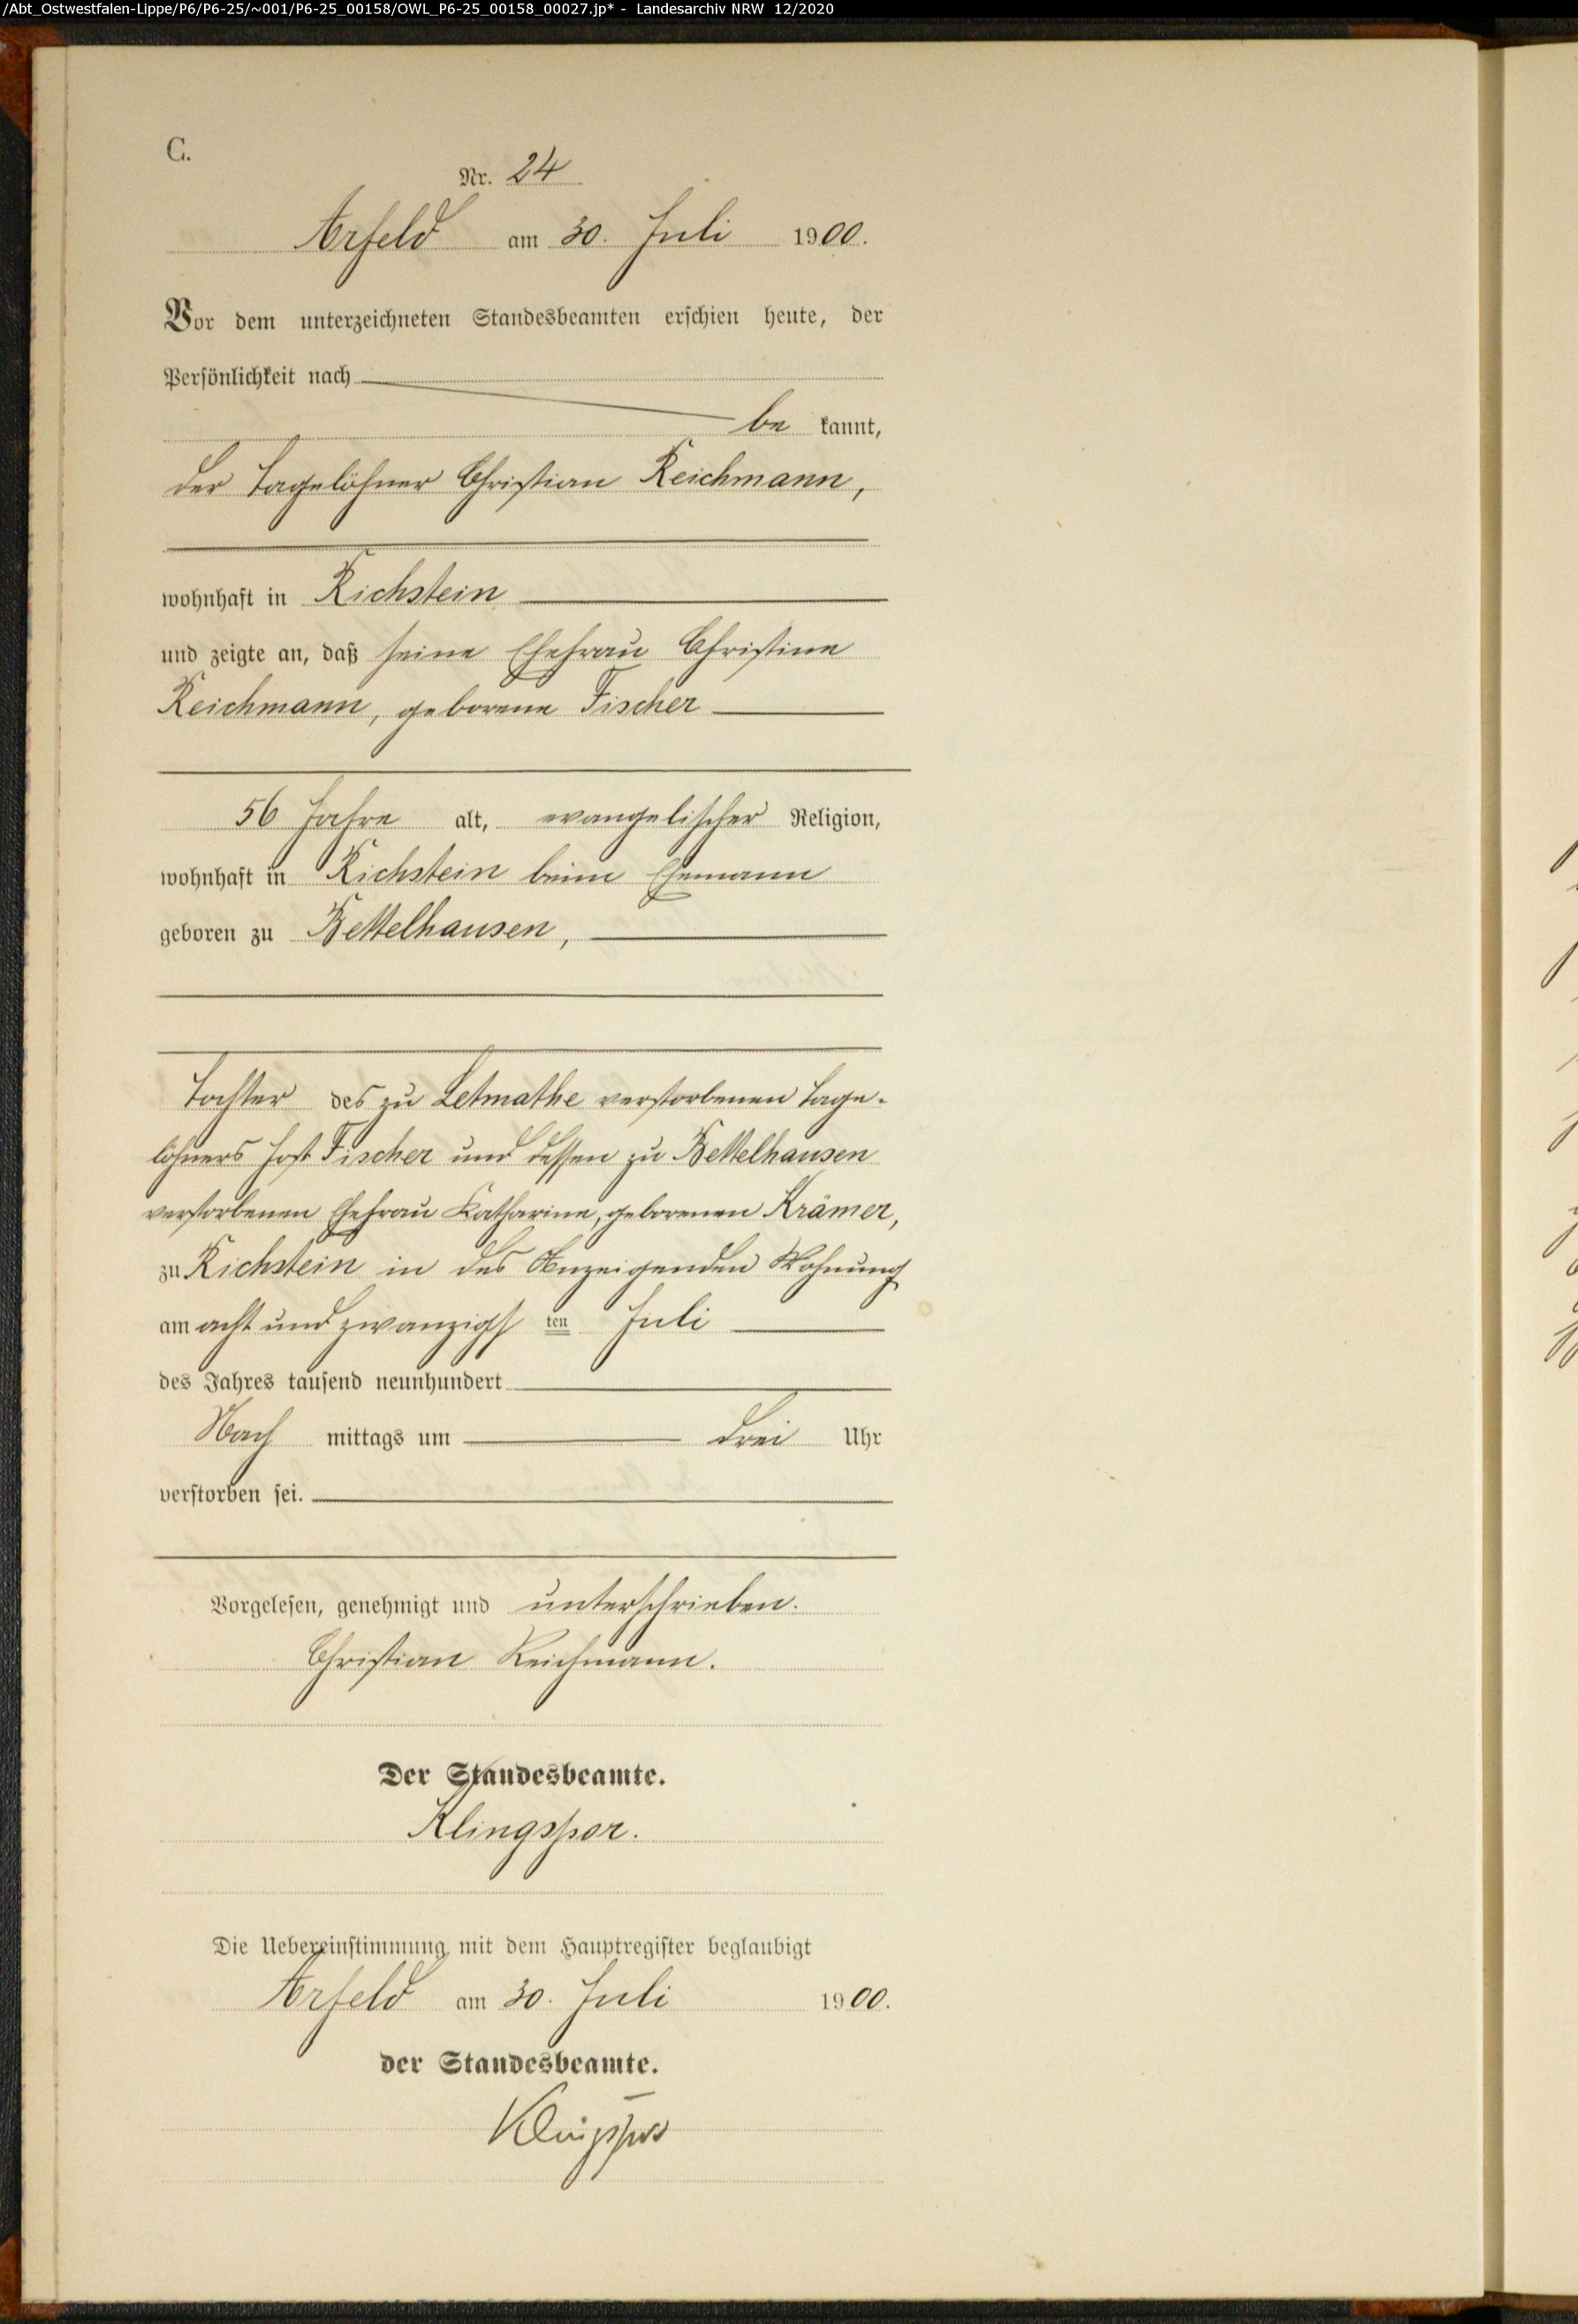 /Abt_Ostwestfalen-Lippe/P6/P6-25/~001/P6-25_00158/OWL_P6-25_00158_00027.jp* - Landesarchiv NRW 12/2020
C.
Nr. 24
Arfeld am 30. Juli 1900.
Vor dem unterzeichneten Standesbeamten erschien heute, der
Persönlichkeit nach
be kannt,
der Tagelöhner Christian Reichmann,
wohnhaft in Richstein
und zeigte an, daß seine Ehefrau Christine
Reichmann, geborene Fischer
56 Jahre alt, evangelischer Religion,
wohnhaft in Richstein beim Ehemann
geboren zu Bettelhausen,
Tochter des zu Letmathe verstorbenen Tage-
löhners Jost Fischer und dessen zu Bettelhausen
verstorbenen Ehefrau Katharine, geborenen Krämer,
zu Richstein in des Anzeigenden Wohnung
am acht und zwanzigs ten Juli
des Jahres tausend neunhundert
Nach mittags um drei Uhr
verstorben sei.
Vorgelesen, genehmigt und unterschrieben.
Christian Reichmann.
Der Standesbeamte.
Klingspor.
Die Uebereinstimmung mit dem Hauptregister beglaubigt
Arfeld am 30. Juli 1900.
der Standesbeamte.
Klingspor